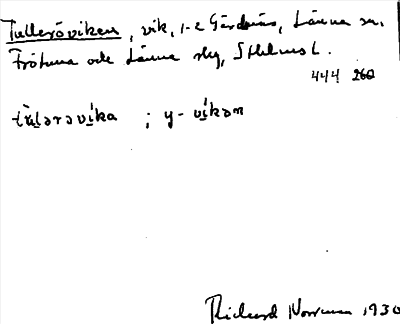 Tulleröviken, vik, 1-2 Gärdsnäs, Länna sn.
Frötuna och Länna slg, Sthlms L.
444 260
tùlərəvika ; y- vikən
Richard Norrman 1930